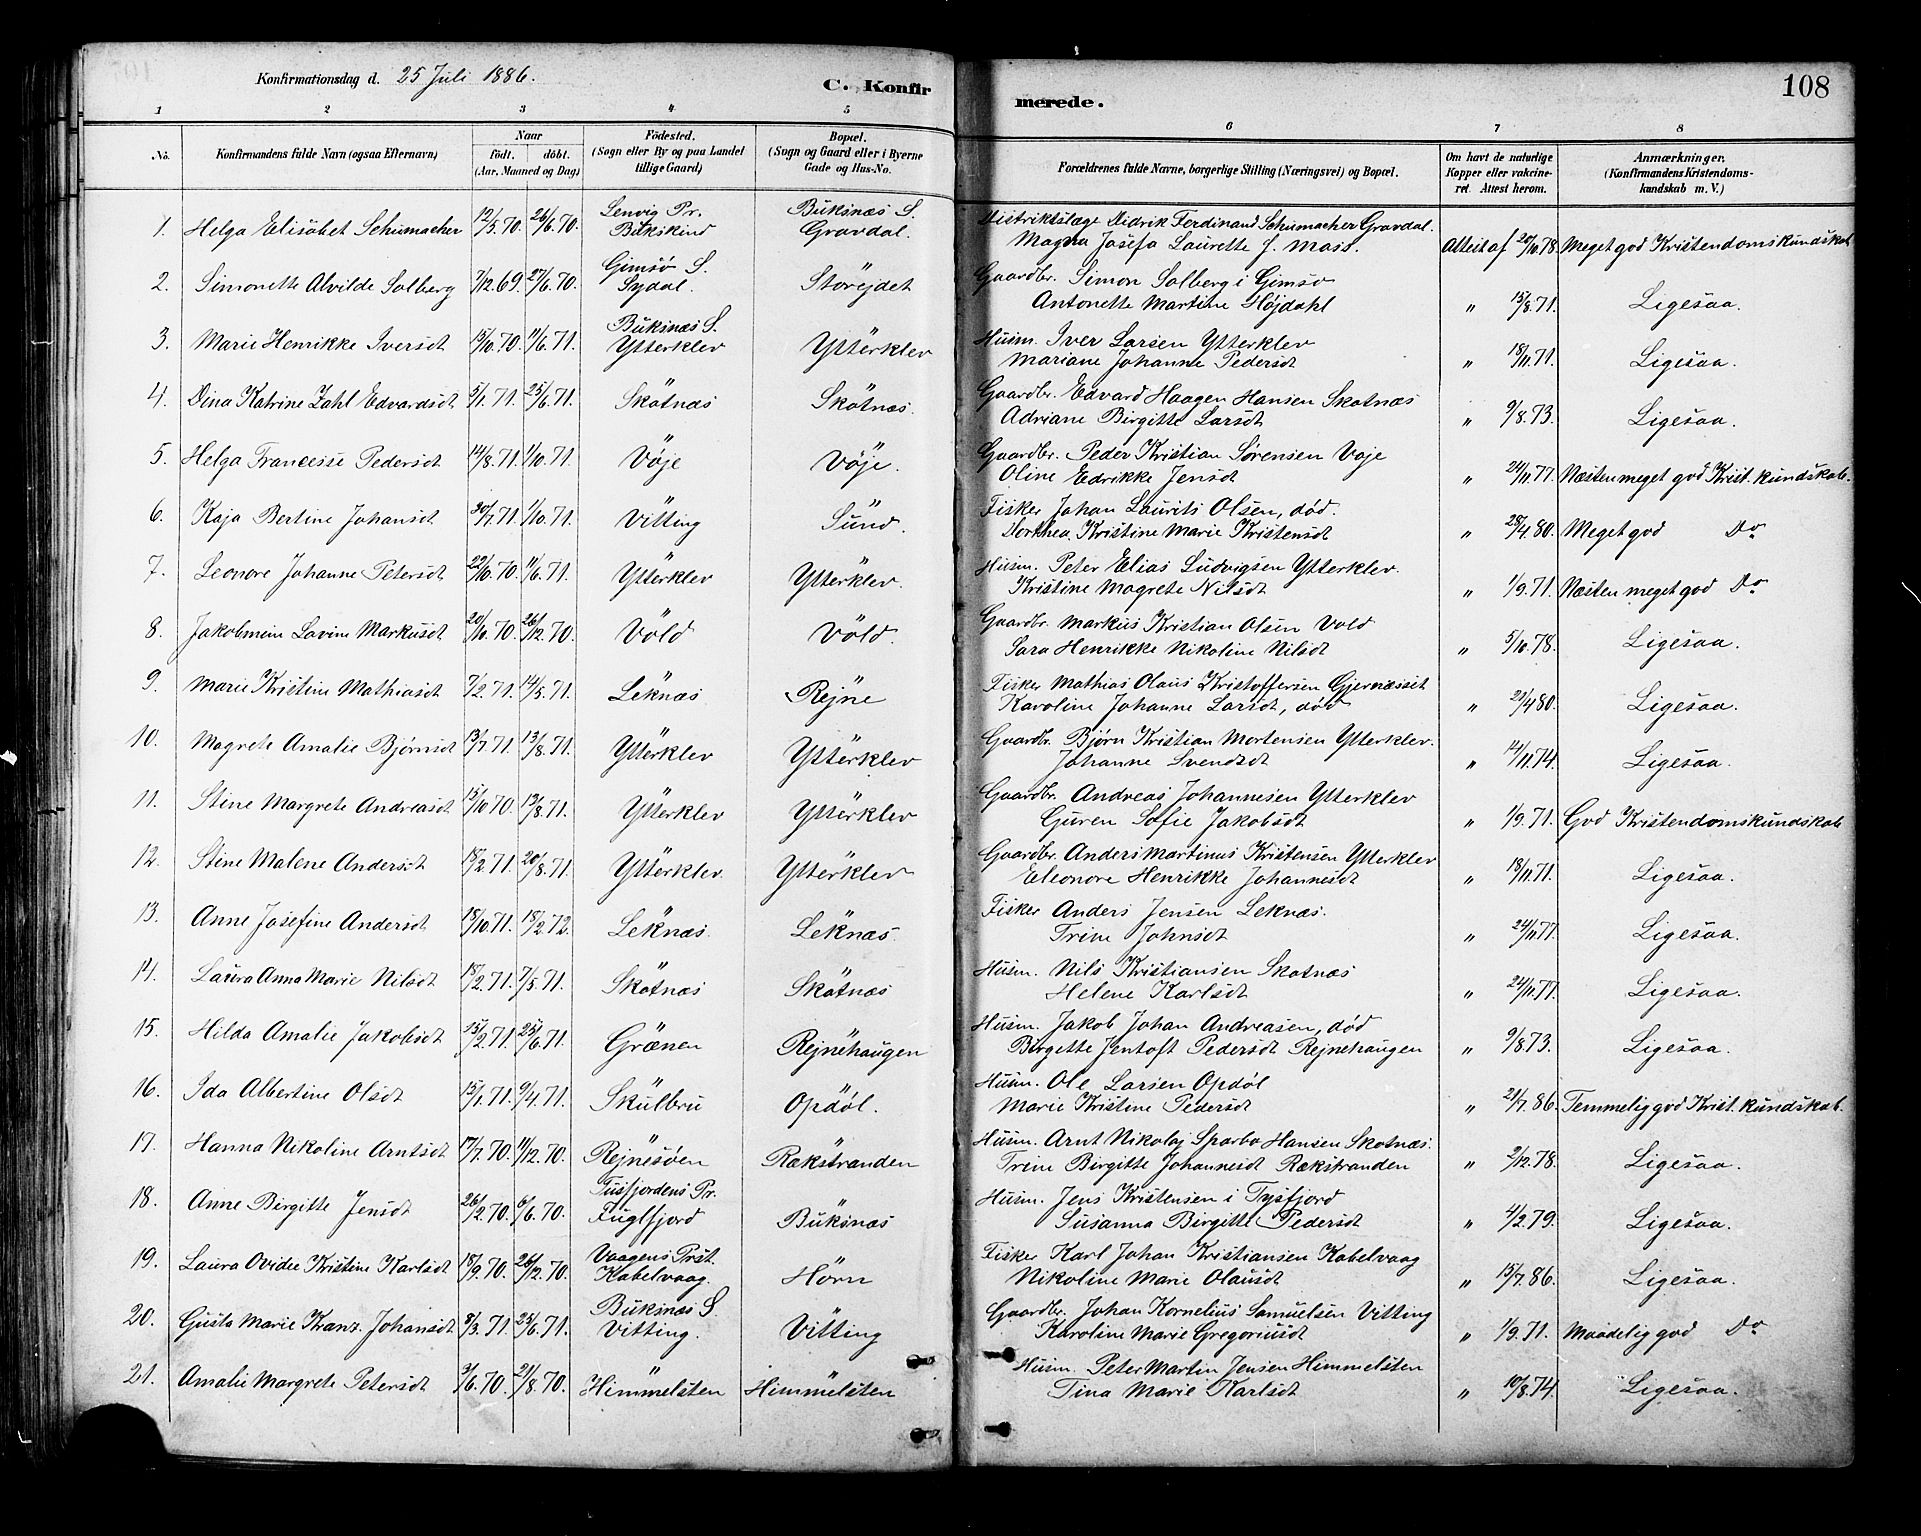 108
Konfirmationsdag d. 25 Juli 1886.
C. Konfirmerede.
1 2 3 4 5 6 7 8
No.
Konfirmandens fulde Navn (ogsaa Efternavn)
Naar
födt. döbt.
(Aar, Maaned og Dag)
Födested.
(Sogn eller By og paa Landet
tillige Gaard)
Bopæl.
(Sogn og Gaard eller i Byerne
Gade og Hus-No.
Forældrenes fulde Navne, borgerlige Stilling (Næringsvei) og Bopæl.
Om havt de naturlige
Kopper eller vakcine-
ret. Attest herom.
Anmærkninger.
(Konfirmandens Kristendoms-
kundskab m. V.)
1. Helga Elisabet Schumacher 12/5.70. 26/6.70. Lenvig Pr. Buksnæs S. Gravdal. Distriktslæge Didrik Ferdinand Schumacher Gravdal.
Magna Josefa Laurette f. Attest af 20/10.78. Meget god Kristendomskundskab
2. Simonette Alvilde Solberg 7/12.69. 27/6.70. Gimsø S. Sydal. Storejdet Gaardbr. Simon Solberg i Gimsø
Antonette Martine Højdahl " 15/8.71. Ligesaa.
3. Marie Henrikke Iversdt 15/10.70. 11/6.71. Buksnæs S. Ytterklev Ytterklev Husm. Iver Larsen Ytterklev
Mariane Johanne Pedersdt " 18/11.71. Ligesaa.
4. Dina Katrine Zahl Edvardsdt 5/1.71. 25/6.71. Skotnæs Skotnæs. Gaardbr. Edvard Haagen Hansen Skotnæs
Adriane Birgitte Larsdt " 9/8.73. Ligesaa.
5. Helga Francesse Pedersdt 14/8.71. 1/10.71. Voje Voje. Gaardbr. Peder Kristian Sørensen Voje
Oline Edrikke Jensdt " 24/11.77. Næsten meget god Krist. kundskab.
6. Kaja Bertine Johansdt 30/7.71. 1/10.71. Vitting Sund. Fisker Johan Laurits Olsen, død.
Dorthea Kristine Marie Kristensdt " 28/4.80. Meget god Do
7. Leonore Johanne Petersdt 22/10.70. 11/6.71. Ytterklev Ytterklev. Husm. Peter Elias Ludvigsen Ytterklev.
Kristine Magrete Nilsdt " 1/9.71. Næsten meget god Do
8. Jakobmine Lovine Markusdt 20/10.70. 26/12.70. Vold Vold. Gaardbr. Markus Kristian Olsen Vold
Sara Henrikke Nikoline Nilsdt " 5/10.78. Ligesaa.
9. Marie Kristine Mathiasdt 7/2.71. 14/5.71. Leknæs Rejne Fisker Mathias Olaus Kristoffersen Gjernæsset
Karoline Johanne Larsdt, død " 21/4.80. Ligesaa.
10. Magrete Amalie Bjørnsdt 13/7.71. 13/8.71. Ytterklev Ytterklev Gaardbr. Bjørn Kristian Mortensen Ytterklev.
Johanne Svendsdt " 14/11.74. Ligesaa.
11. Stine Margrete Andreasdt 15/10.70. 13/8.71. Ytterklev Ytterklev Gaardbr. Andreas Johannesen Ytterklev
Guren Sofie Jakobsdt " 1/9.71. God Kristendomskundskab
12. Stine Malene Andersdt 18/2.71. 20/8.71. Ytterklev. Ytterklev Gaardbr. Anders Martinus Kristensen Ytterklev
Eleonore Henrikke Johannesdt " 18/11.71. Ligesaa.
13. Anne Josefine Andersdt 18/10.71. 18/2.72. Leknæs. Leknæs. Fisker Anders Jensen Leknæs.
Trine Johnsdt " 24/11.77. Ligesaa.
14. Laura Anna Marie Nilsdt 18/2.71. 7/5.71. Skotnæs Skotnæs Husm. Nils Kristiansen Skotnæs
Helene Karlsdt " 24/11.77. Ligesaa.
15. Hilda Amalie Jakobsdt 15/2.71. 25/6.71. Grønen Rejnehaugen Husm. Jakob Johan Andreasen, død
Birgitte Jentoft Pedersdt Rejnehaugen " 9/8.73. Ligesaa.
16. Ida Albertine Olsdt 15/1.71. 9/4.71. Skulbru Opdøl. Husm. Ole Larsen Opdøl
Marie Kristine Pedersdt " 21/7.86. Temmelig god Krist. kundskab.
17. Hanna Nikoline Arntsdt 17/7.70. 11/12.70. Rejnesøen Rækstranden Husm. Arnt Nikolaj Sparbo Hansen Skotnæs.
Trine Birgitte Johannesdt Rækstranden " 2/12.78. Ligesaa.
18. Anne Birgitte Jensdt 26/2.70. 6/6.70. Tusfjordens Pr. Fuglfjord Buksnæs Husm. Jens Kristensen i Tysfjord
Susanna Birgitte Pedersdt " 4/2.79. Ligesaa.
19. Laura Ovidie Kristine Karlsdt 18/9.70. 26/12.70. Vaagens Prst. Kabelvaag. Horn Fisker Karl Johan Kristiansen Kabelvaag
Nikoline Marie Olausdt " 15/7.86. Ligesaa.
20. Gusta Marie Kranz Johansdt 8/3.71. 25/6.71. Buksnæs S. Vitting. Vitting Gaardbr. Johan Kornelius Samuelsen Vitting
Karoline Marie Gregoriusdt " 1/9.71. Maadelig god Do
21. Amalie Margrete Petersdt 3/6.70. 21/8.70. Himmelsten Himmelsten Husm. Peter Martin Jensen Himmelsten
Tina Marie Karlsdt " 10/8.74. Ligesaa.